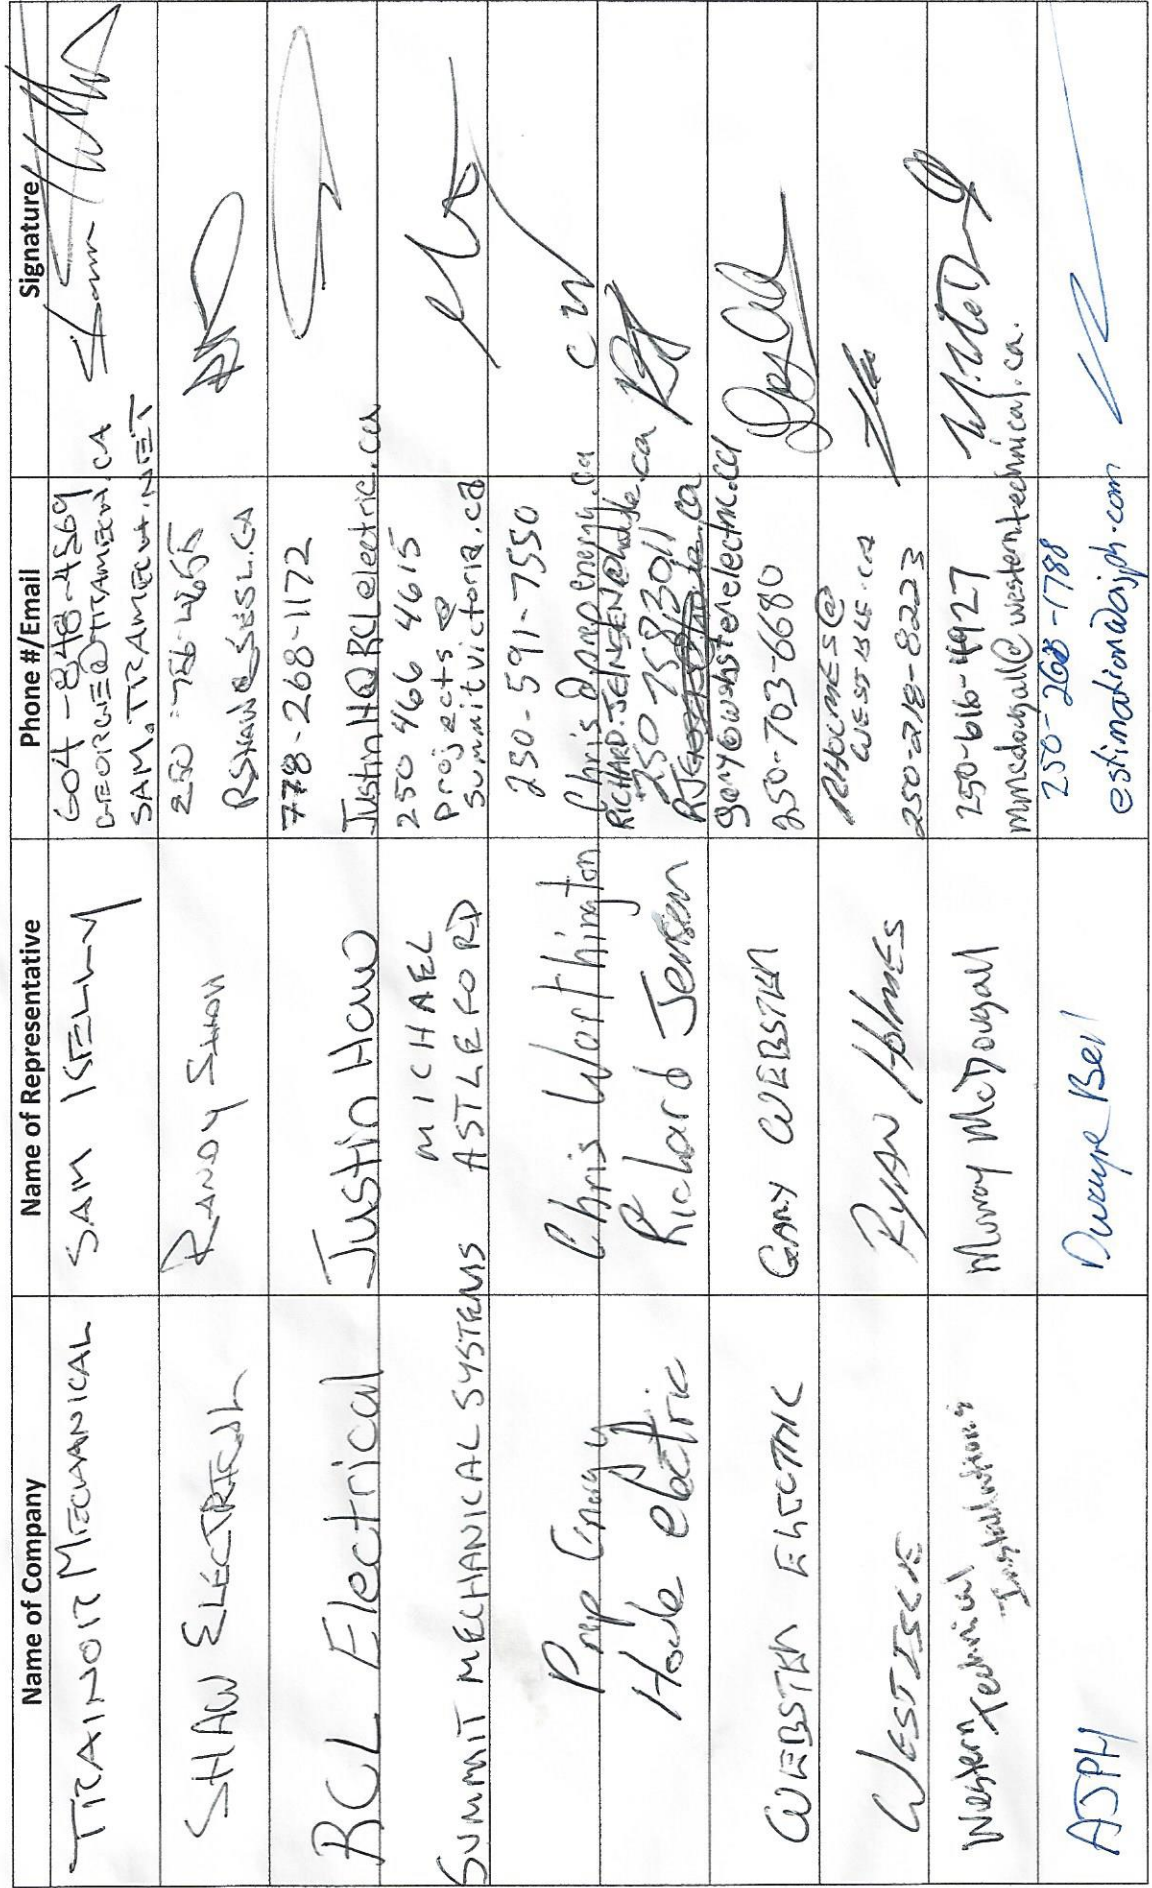 Name of Company Name of Representative Phone #/Email Signature
TRAINOR MECHANICAL SAM KELLY 604-848-4569
SAM.TRAMECH.NET
SHAW ELECTRICAL RANDY SHAW
RSHAW@SESL.CA
RCL Electrical Justin Haw 778-268-1172
JustinH@RCLelectric.ca
SUMMIT MECHANICAL SYSTEMS MICHAEL ASTLEFORD 250 466 4615
projects@
summitvictoria.ca
Prep Energy Chris Worthington 250-591-7550
Chris@prepenergy.ca CW
Houle electric Richard Jensen RICHARD.JENSEN@houle.ca
250 758 3011
WEBSTER ELECTRIC GARY WEBSTER gary@websterelectric.ca
250-703-6680
WESTISLE RYAN Holmes RHOLMES@
WESTISLE.CA
250-218-8223
Western Technical Installations Murray McDougall 250-616-4927
mmcdougall@westerntechnical.ca.
AJPH Dwayne Bell 250-268-1788
estimation@ajph.com